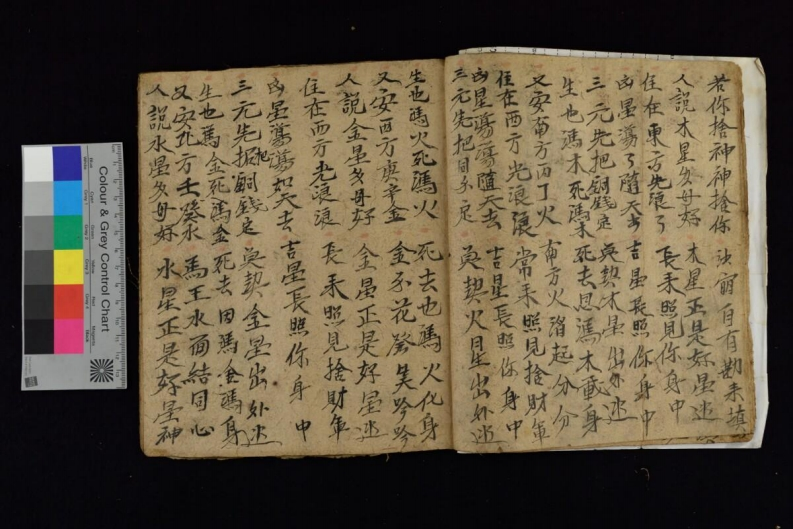 若你捨神神捨你 自有勘耒填
人説木星多毋好 木星正是好星迯
住在東方光浪々 長耒照見你身中
凶星蕩々隨天去 吉星長照你身中
三元先把銅銭定 莫契木星出外迯
生也馮木死馮木 死去思馮木身
又安南方丙丁火 南方火焰起分分
住在西方光浪浪 常耒照見捨財軍
凶星蕩蕩隨天去 吉星長照你身中
三元先把定 莫契火星出外迯
生也馮火死馮火 死去也馮火化身
又安西方庚辛金 金子花發笑吟吟
人説金星多毋好 金星正是好星迯
住在西方光浪浪 長耒照見捨財軍
凶星蕩蕩如天去 吉星長照你身中
三元先把銅銭定 莫契金星出外迯
生也馮金死馮金 死去因馮金馮身
又安北方壬癸水 馬王水面結同心
人説水星多毋好 水星正是好星神
Colour & Grey Control Chart